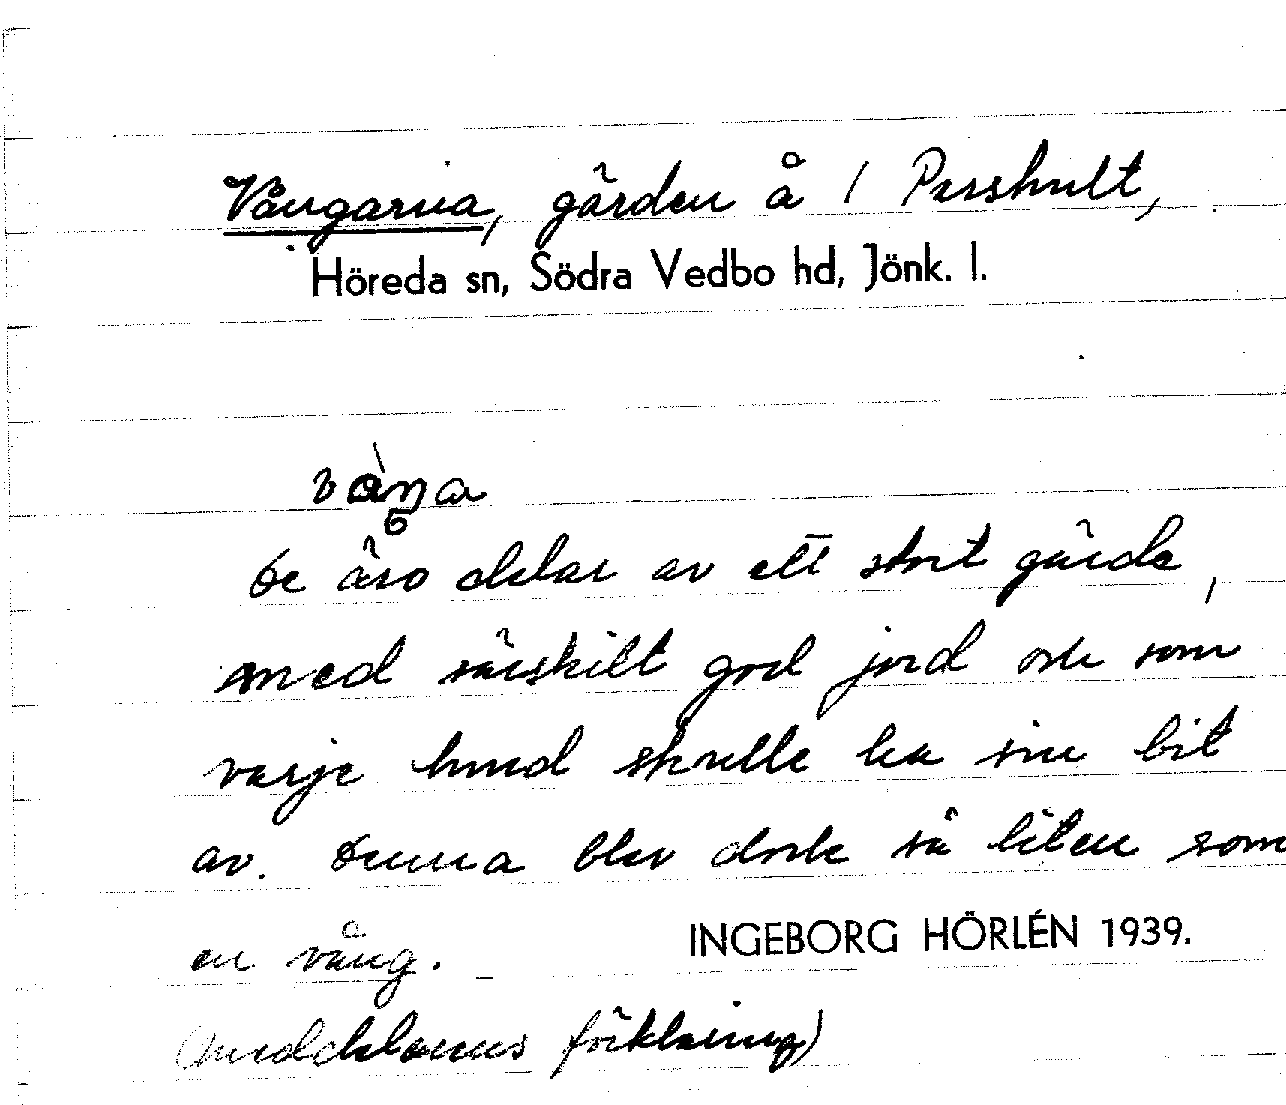 Vångarna, gärden å 1 Pershult,
Höreda sn, Södra Vedbo hd, Jönk. l.
De äro delar av ett stort gärde,
med särskilt god jord och som
varje hund skulle ha sin bit
av. Denna blev dock så liten som
en vång.
INGEBORG HÖRLÉN 1939.
(meddelarens förklaring)